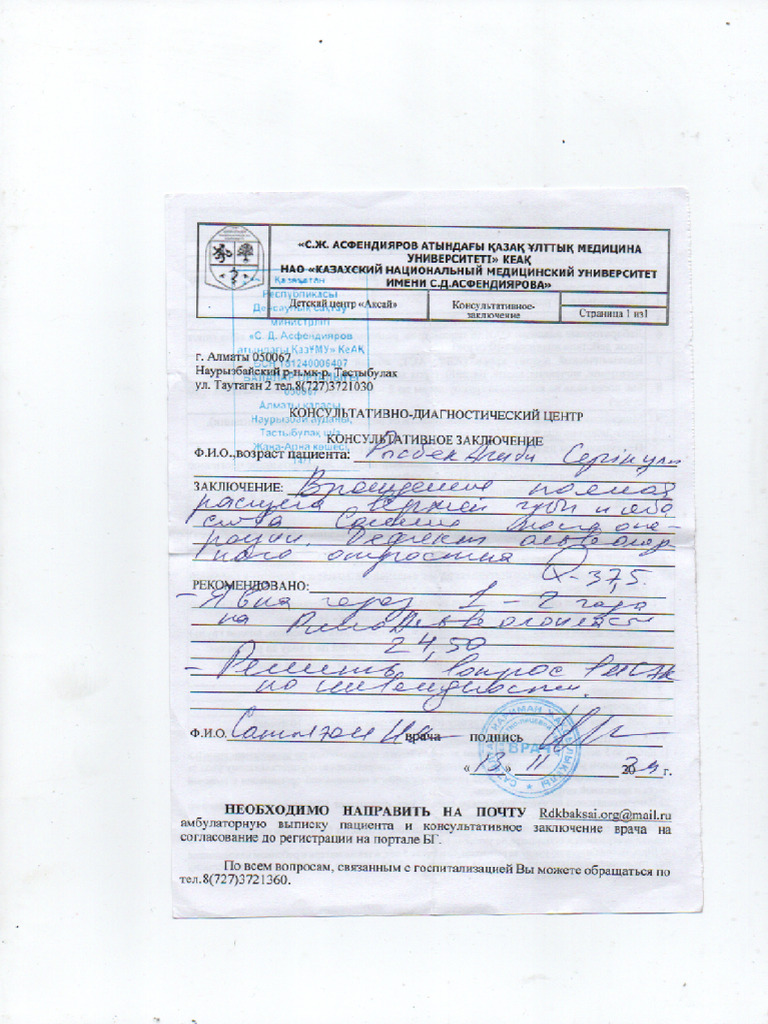 «С.Ж. АСФЕНДИЯРОВ АТЫНДАҒЫ ҚАЗАҚ ҰЛТТЫҚ МЕДИЦИНА
УНИВЕРСИТЕТІ» КЕАҚ
НАО «КАЗАХСКИЙ НАЦИОНАЛЬНЫЙ МЕДИЦИНСКИЙ УНИВЕРСИТЕТ
ИМЕНИ С.Д.АСФЕНДИЯРОВА»
Детский центр «Аксай»
Консультативное-
заключение
Страница 1 из1
Қазақстан
Республикасы
Денсаулық сақтау
министрлігі
«С. Д. Асфендияров
атындағы ҚазҰМУ» КеАҚ
050067
Алматы қаласы
Наурызбай ауданы,
Тастыбұлақ
г. Алматы 050067
Наурызбайский р-н.мк-р. Тастыбулак
ул. Таутаган 2 тел.8(727)3721030
КОНСУЛЬТАТИВНО-ДИАГНОСТИЧЕСКИЙ ЦЕНТР
КОНСУЛЬТАТИВНОЕ ЗАКЛЮЧЕНИЕ
Ф.И.О.,возраст пациента: Рысбек
ЗАКЛЮЧЕНИЕ: Врожденная полная
расщелина верхней губы и неба
слева Состояние после опе-
рации. Дефект альвеоляр
ного отростка Q-37,5.
РЕКОМЕНДОВАНО:
- Явка через 1 - 2 года
на
24,50
- Решить вопрос
по инвалидности.
Ф.И.О. врача подпись
ВРАЧ
« 13 » 11 20 г.
НЕОБХОДИМО НАПРАВИТЬ НА ПОЧТУ Rdkbaksai.org@mail.ru
амбулаторную выписку пациента и консультативное заключение врача на
согласование до регистрации на портале БГ.
По всем вопросам, связанным с госпитализацией Вы можете обращаться по
тел.8(727)3721360.